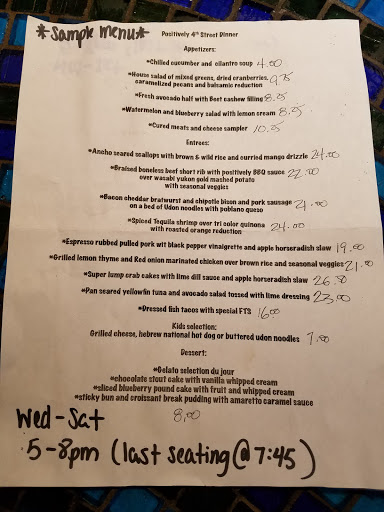 *Sample Menu*
Positively 4th Street Dinner
Appetizers:
*Chilled cucumber and cilantro soup 4.00
*House salad of mixed greens, dried cranberries, 9.75
caramelized pecans and balsamic reduction
*Fresh avocado half with Beet cashew filling 8.95
*Watermelon and blueberry salad with lemon cream 8.95
*Cured meats and cheese sampler 10.95
Entrees:
*Ancho seared scallops with brown & wild rice and curried mango drizzle 24.00
*Braised boneless beef short rib with positively BBQ sauce 22.00
over wasabi yukon gold mashed potato
with seasonal veggies
*Bacon cheddar bratwurst and chipotle bison and pork sausage 21.00
on a bed of Udon noodles with poblano queso
*Spiced Tequila shrimp over tri color quinona 24.00
with roasted orange reduction
*Espresso rubbed pulled pork wit black pepper vinaigrette and apple horseradish slaw 19.00
*Grilled lemon thyme and Red onion marinated chicken over brown rice and seasonal veggies 21.00
*Super lump crab cakes with lime dill sauce and apple horseradish slaw 26.50
*Pan seared yellowfin tuna and avocado salad tossed with lime dressing 23.00
*Dressed fish tacos with special FTS 16.00
Kids selection:
Grilled cheese, hebrew national hot dog or buttered udon noodles 7.00
Dessert:
*Gelato selection du jour
*chocolate stout cake with vanilla whipped cream
*sliced blueberry pound cake with fruit and whipped cream
*sticky bun and croissant break pudding with amaretto caramel sauce
8.00
Wed-Sat
5-8pm (last seating @ 7:45)